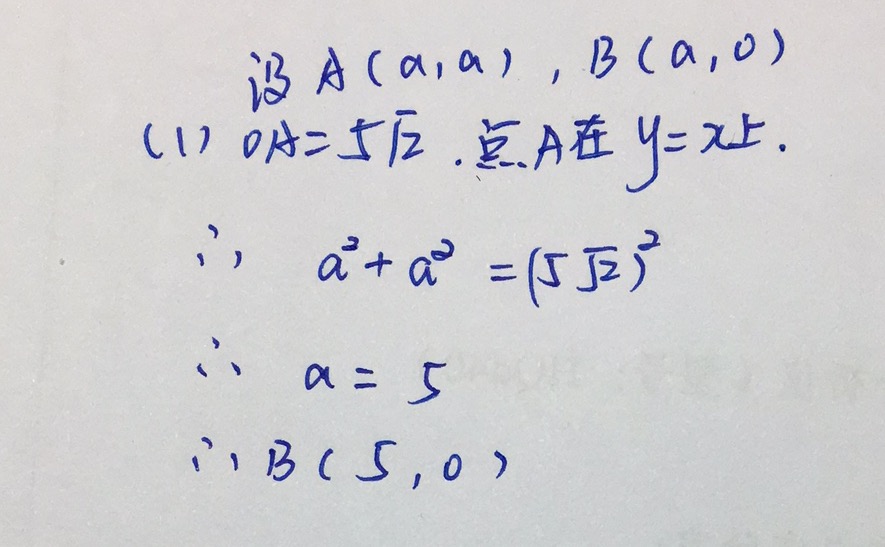 设 A(a,a), B(a,0)
(1) OA=5√2.点A在 y=x上.
∴ a²+a² =(5√2)²
∴ a= 5
∴B(5,0)